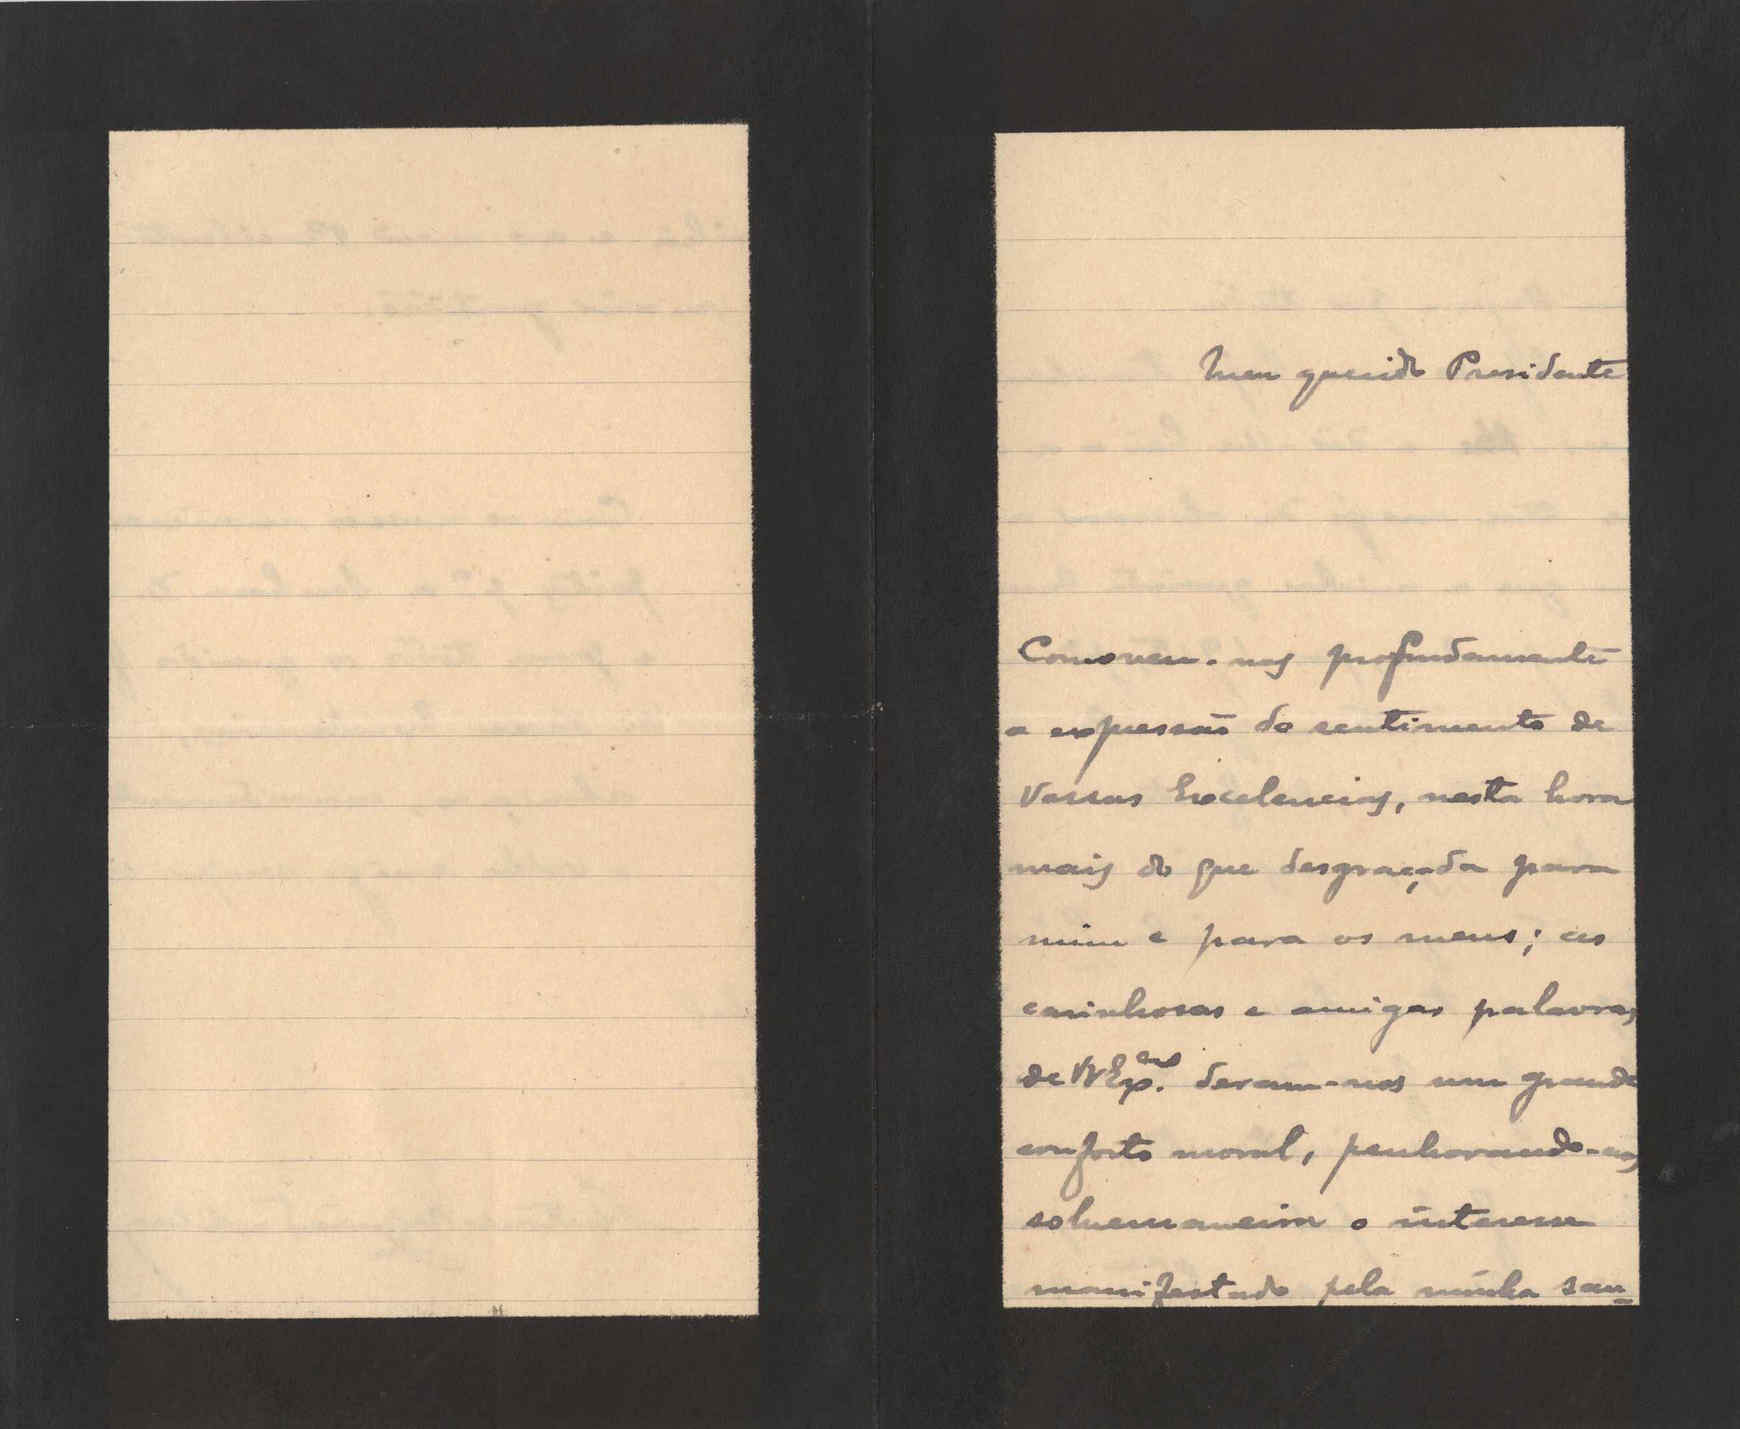 Meu querido Presidente
Comoveu-nos profundamente
a expressão do sentimento de
Vossas Excelencias, nesta hora
mais do que desgraçada para
mim e para os meus; as
carinhosas e amigas palavras
de VVEx.cias deram-nos um grande
conforto moral, penhorando-nos
sobremaneira o interesse
manifestado pela minha sau-